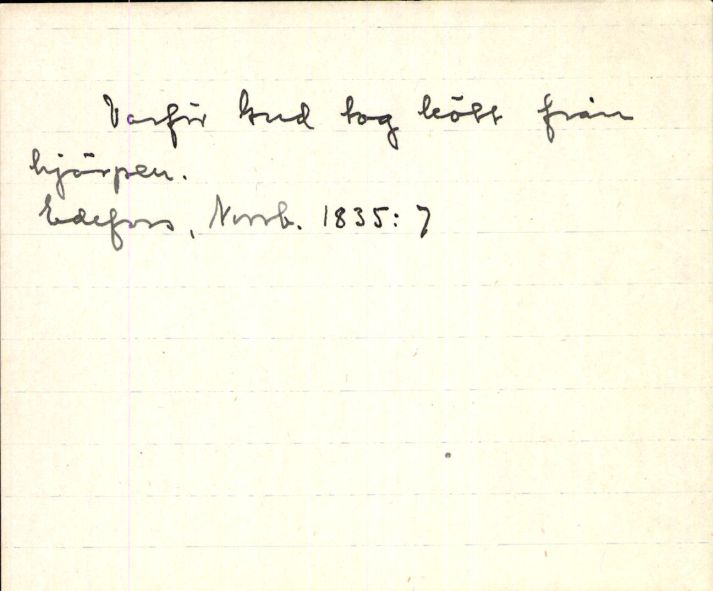 Varför Gud tog kött från
hjärpen.
Edefors, Norrb. 1835: 7